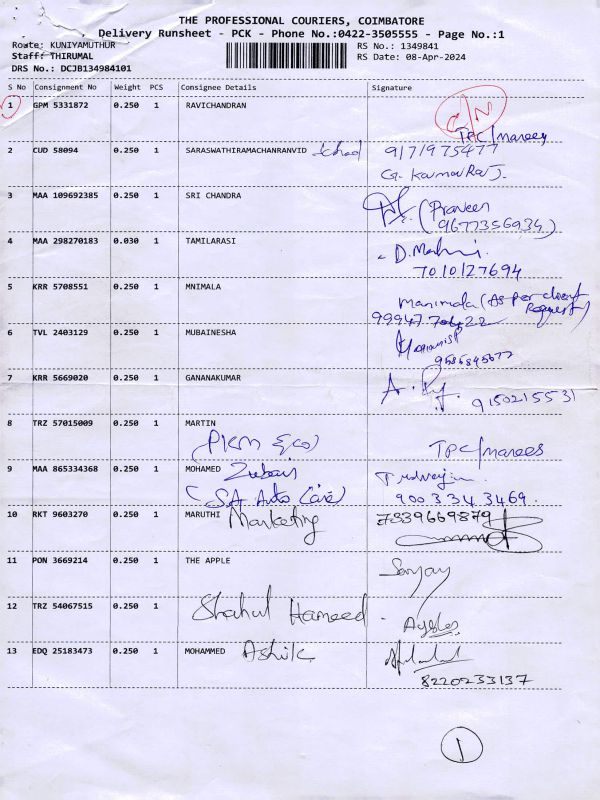 THE PROFESSIONAL COURIERS, COIMBATORE
Delivery Runsheet - PCK - Phone No.:0422-3505555 - Page No.:1
Route: KUNIYAMUTHUR RS No.: 1349841
Staff: THIRUMAL RS Date: 08-Apr-2024
DRS No.: DCJB134984101
S No Consignment No Weight PCS Consignee Details Signature
1 GPM 5331872 0.250 1 RAVICHANDRAN C/N
TPC/marees
2 CUD 58094 0.250 1 SARASWATHIRAMACHANRANVID School 9171975477
G. KumarRaj.
3 MAA 109692385 0.250 1 SRI CHANDRA (Praveen
9677356934)
4 MAA 298270183 0.030 1 TAMILARASI D. Mahi
7010127694
5 KRR 5708551 0.250 1 MNIMALA
Manimala (As per client Request)
99947 70422
6 TVL 2403129 0.250 1 MUBAINESHA
9585845677
7 KRR 5669020 0.250 1 GANANAKUMAR
9150215531
8 TRZ 57015009 0.250 1 MARTIN
(PKM & co) TPC/marees
9 MAA 865334368 0.250 1 MOHAMED Zubair
(SA Auto Care) 9003343469.
10 RKT 9603270 0.250 1 MARUTHI Marketing 7339669879
11 PON 3669214 0.250 1 THE APPLE Sanjay
12 TRZ 54067515 0.250 1 Shahul Hameed
13 EDQ 25183473 0.250 1 MOHAMMED Ashik
8220233137
1